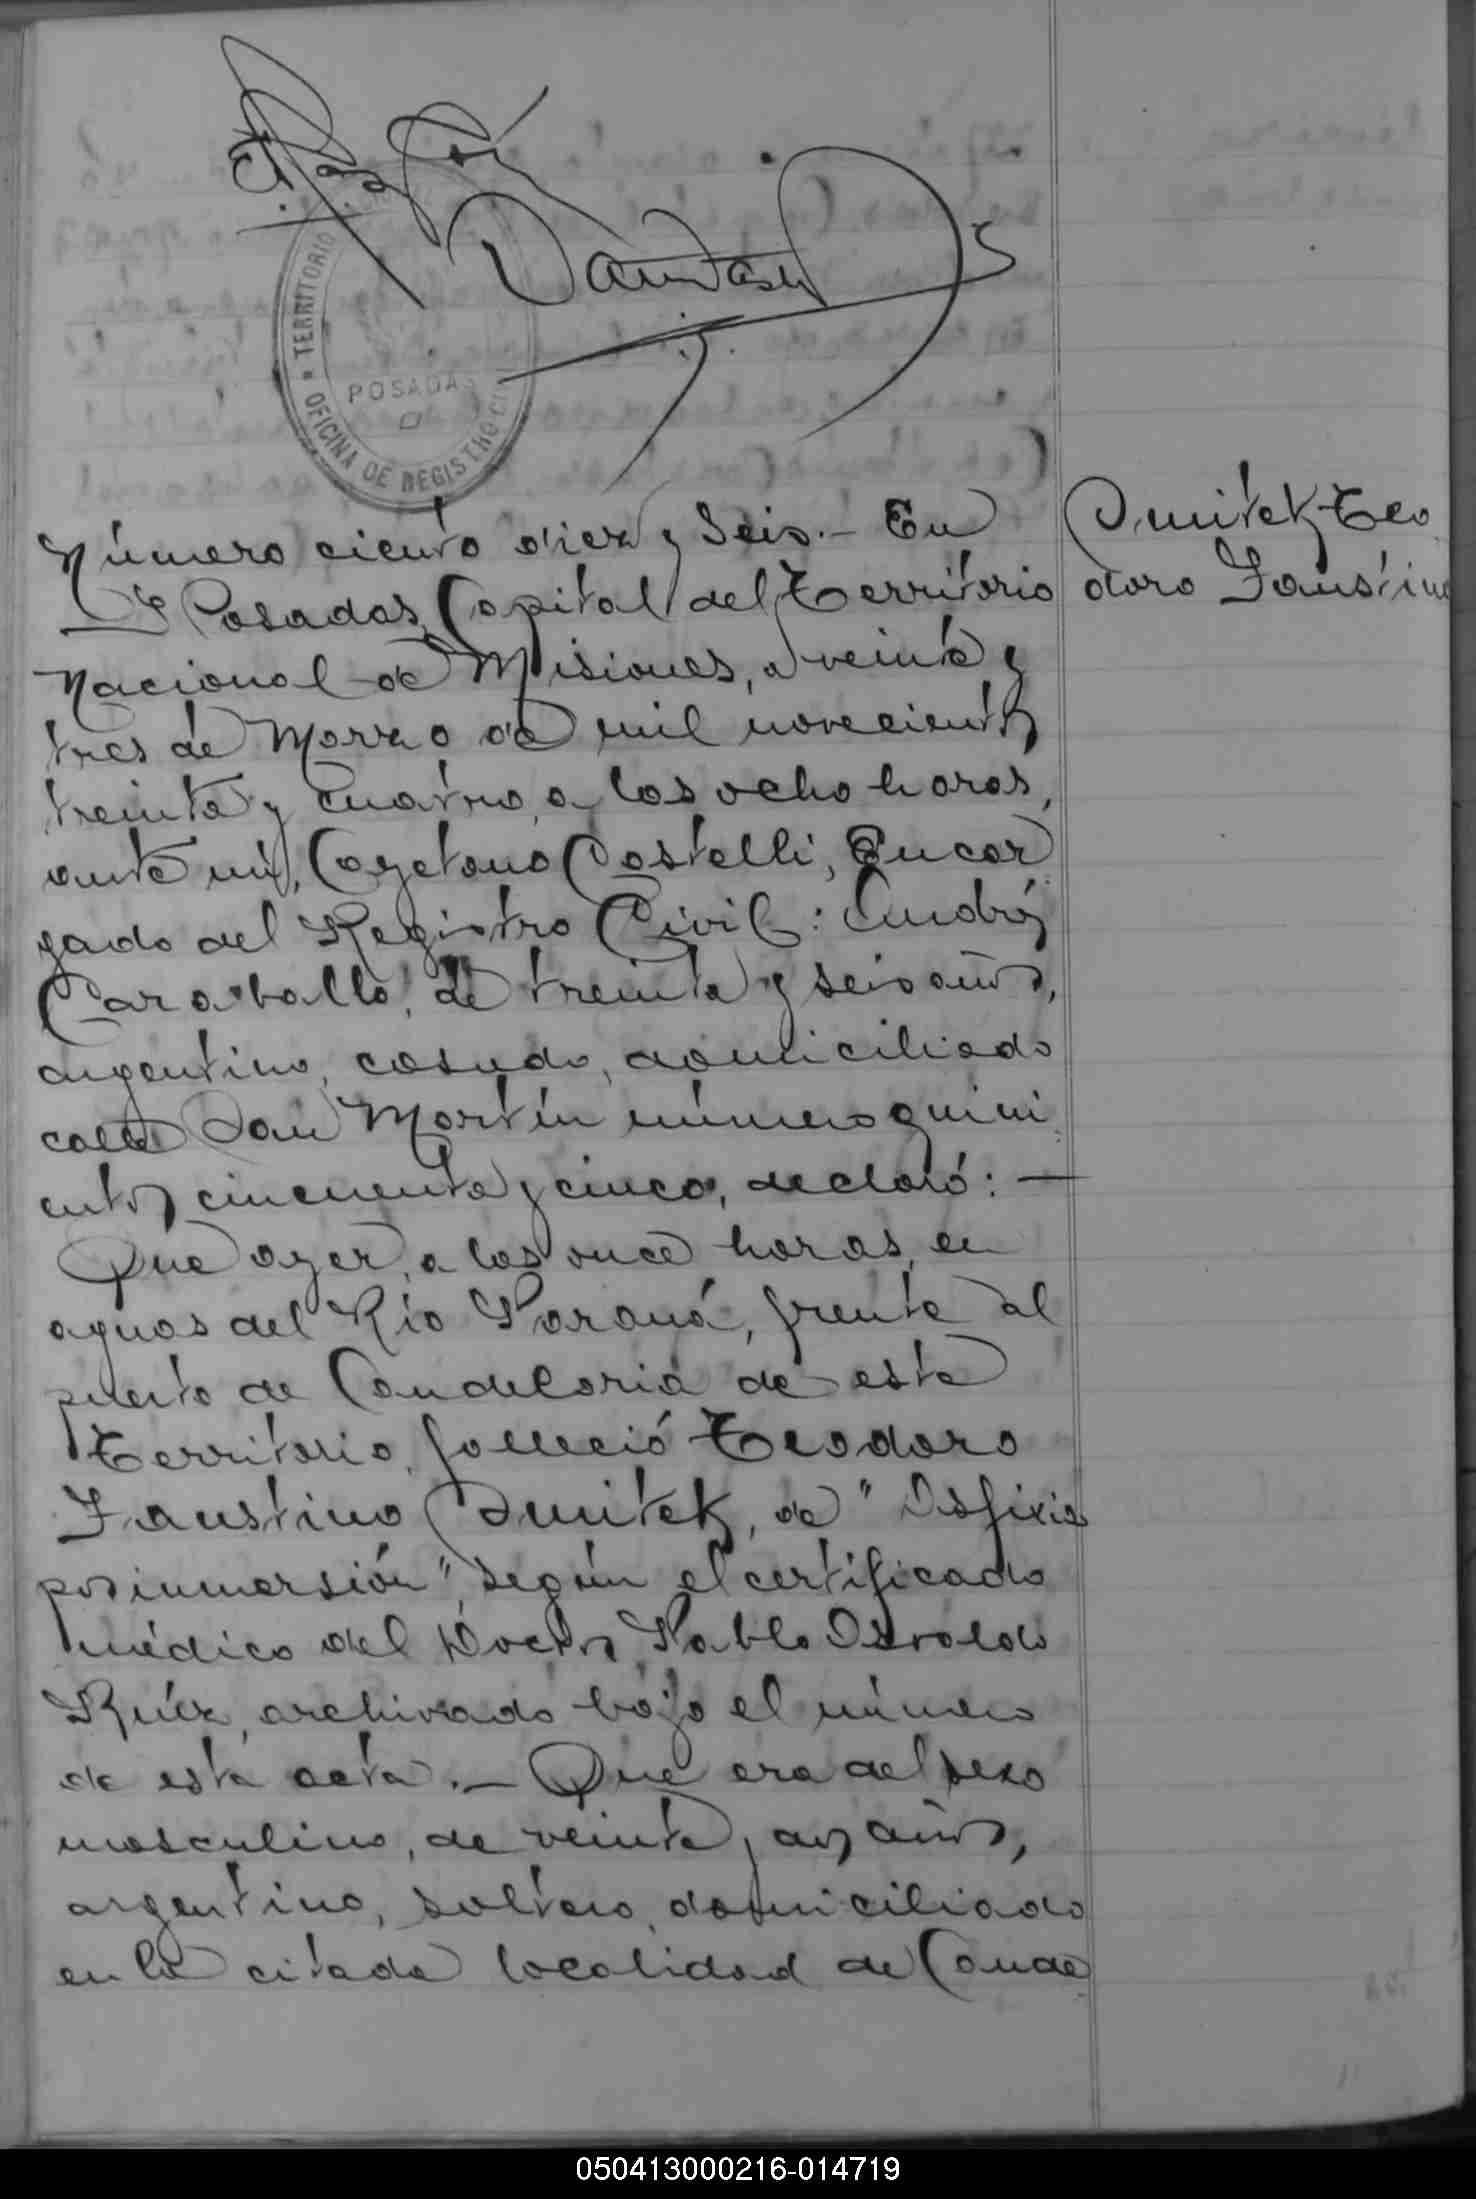 TERRITORIO
POSADAS
OFICINA DE REGISTRO CIVIL
Número ciento diez y seis.- En
Posadas, Capital del Territorio
Nacional de Misiones, a veinte y
tres de Marzo de mil novecientos
treinta y cuatro, a las ocho horas,
ante mí, Cayetano Castelli, Encar
gado del Registro Civil: Andrés
Caraballo, de treinta y seis años,
argentino, casado, domiciliado
calle San Martín número quini
entos cincuenta y cinco, declaró: —
Que ayer, a las once horas, en
aguas del Río Paraná, frente al
puerto de Candelaria de este
Territorio, falleció Teodoro
Faustino Smitek, de "Asfixia
por inmersión", según el certificado
médico del Doctor Pablo Osvaldo
Ruíz, archivado bajo el número
de esta acta.- Que era del sexo
masculino, de veinte y dos años,
argentino, soltero, domiciliado
en la citada localidad de Cande
Smitek Teo
doro Faustino
050413000216-014719